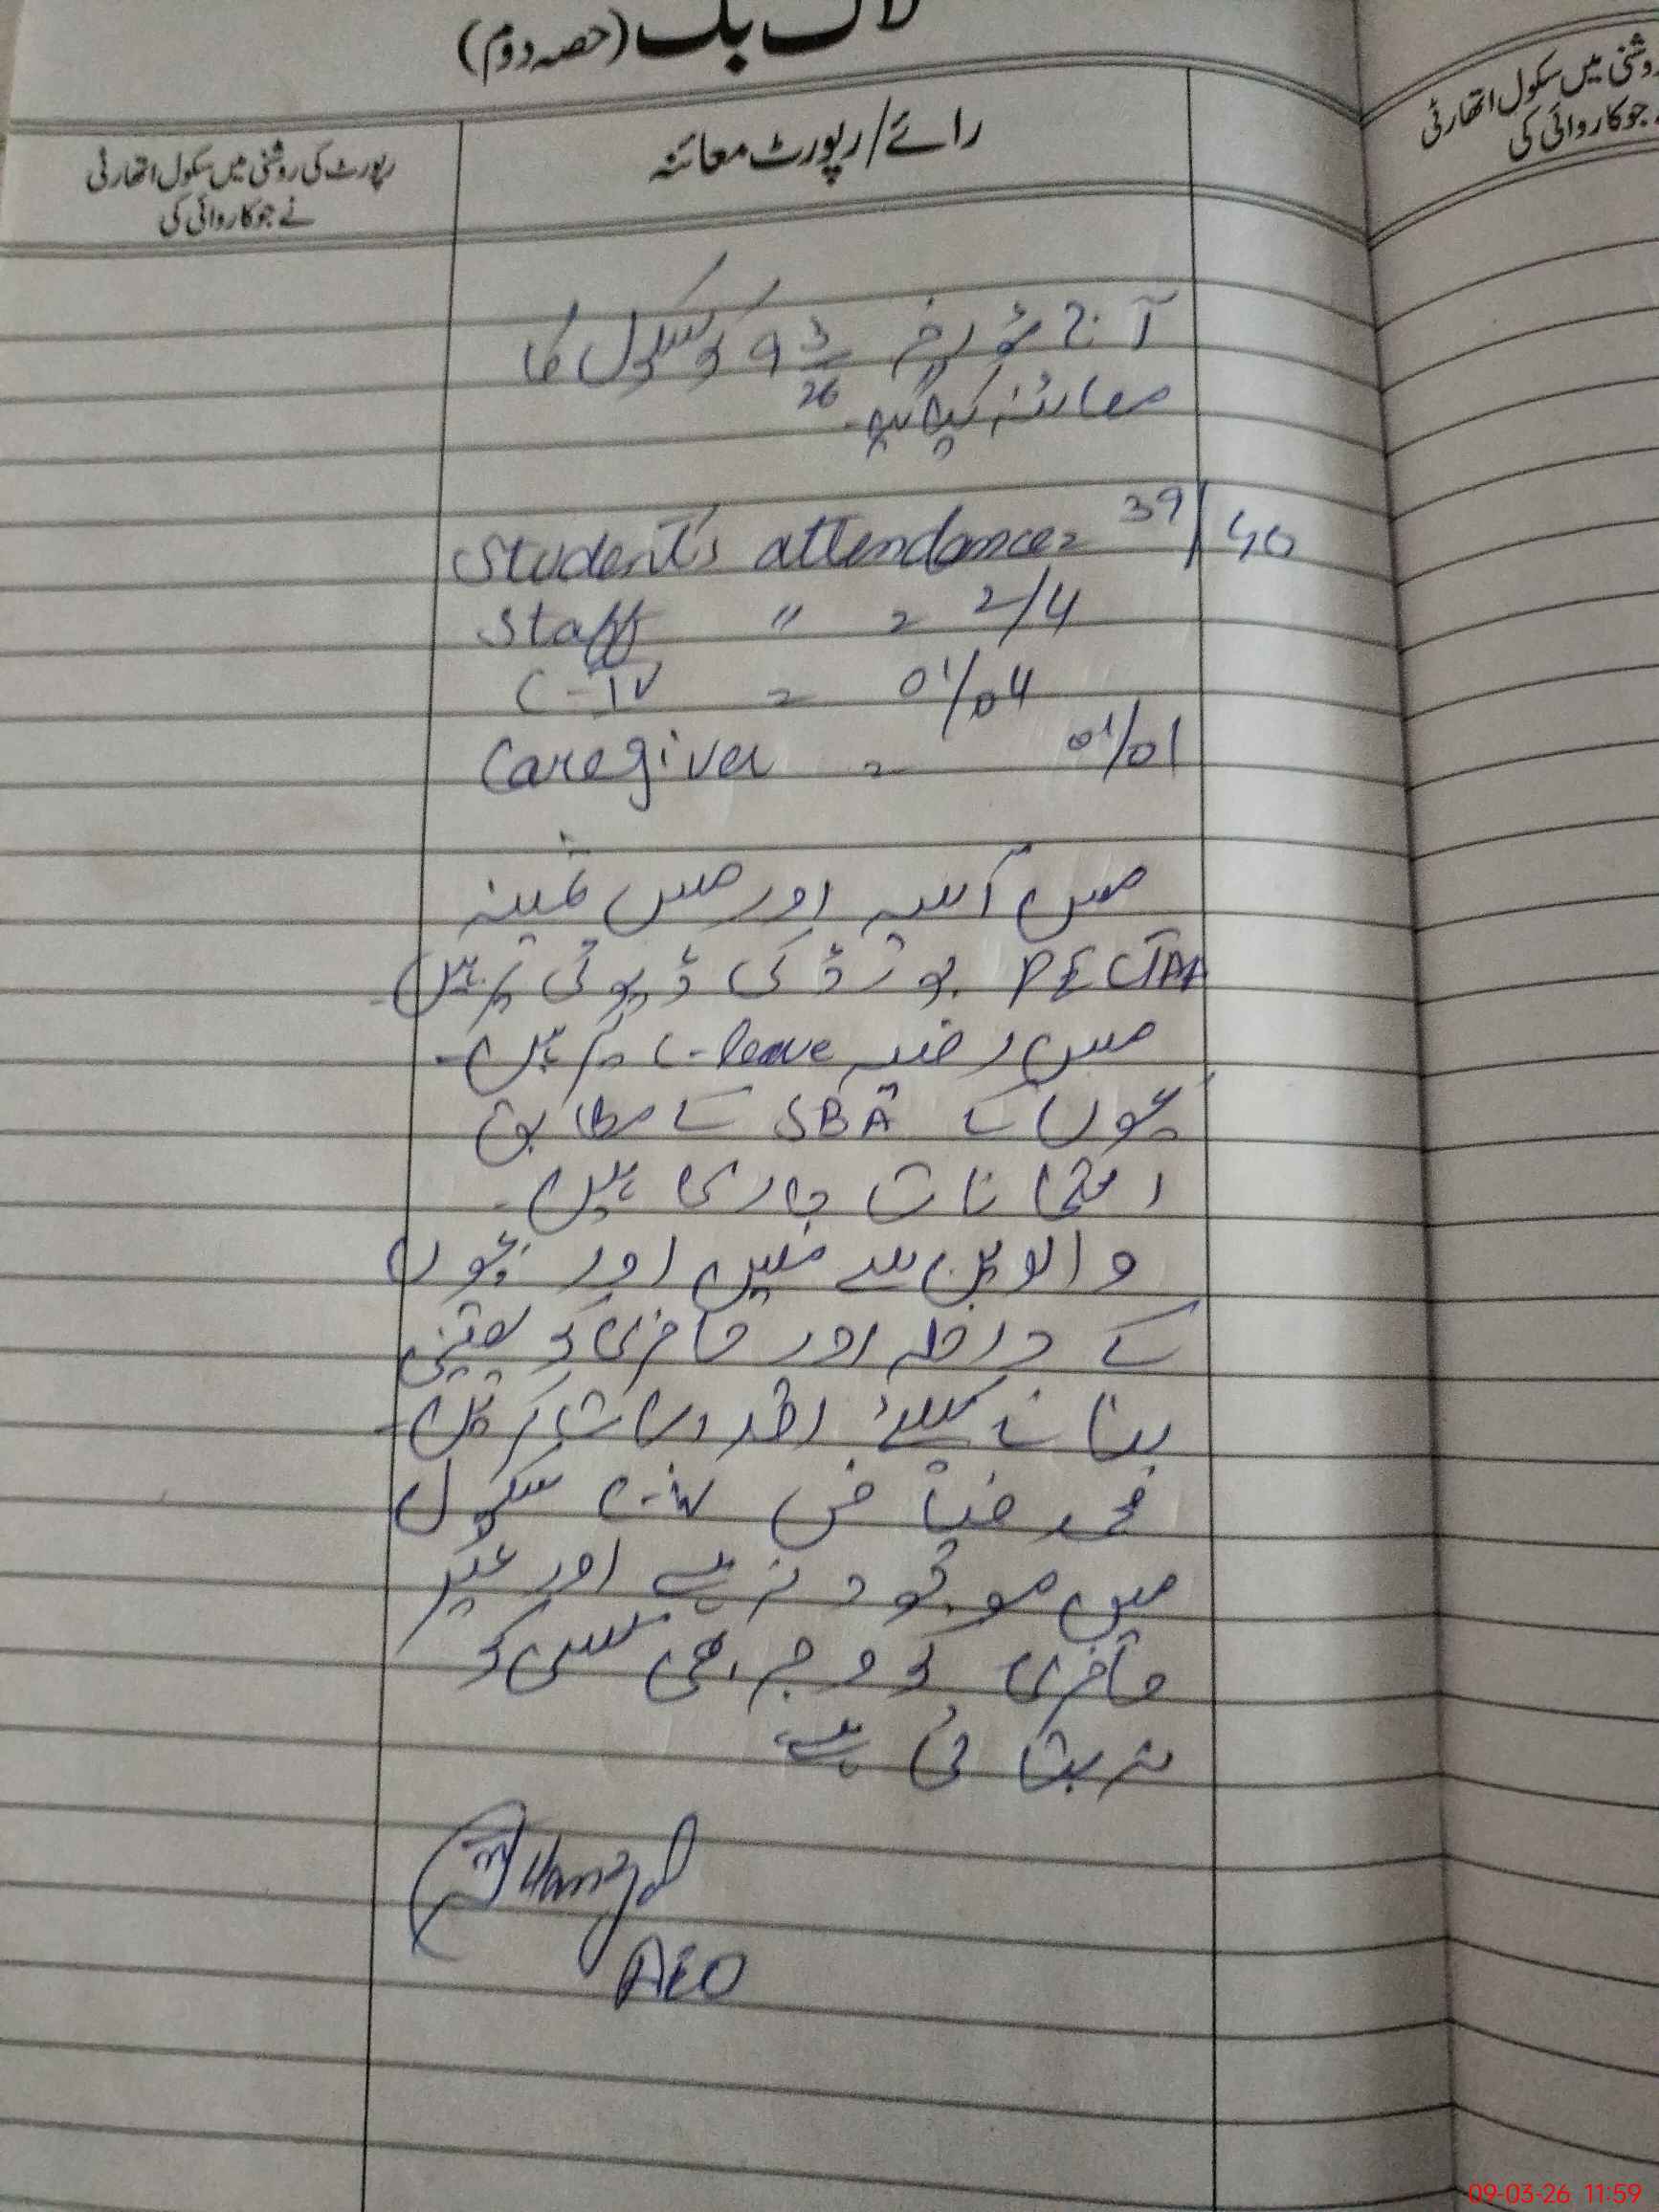 لاگ بک (حصہ دوم)
رائے/رپورٹ معائنہ
رپورٹ کی روشنی میں سکول اتھارٹی
نے جو کاروائی کی
روشنی میں سکول اتھارٹی
جو کاروائی کی
آج مؤرخہ 9 3/26 کو سکول کا
معائنہ کیا گیا۔
Student's attendance = 39/40
Staff " = 2/4
C-IV = 01/04
Caregiver = 01/01
مس آسیہ اور مس ثمینہ
PECTAA بورڈ کی ڈیوٹی پر ہیں۔
مس رضیہ C-leave پر ہیں۔
بچوں کے SBA کے مطابق
امتحانات جاری ہیں۔
والدین سے ملیں اور بچوں
کے داخلہ اور حاضری کو یقینی
بنانے کیلئے اقدامات کریں۔
محمد فیاض C-IV سکول
میں موجود نہ ہے اور غیر
حاضری کو وجہ بھی کسی کو
نہ بتائی ہے۔
AEO
09-03-26 11:59